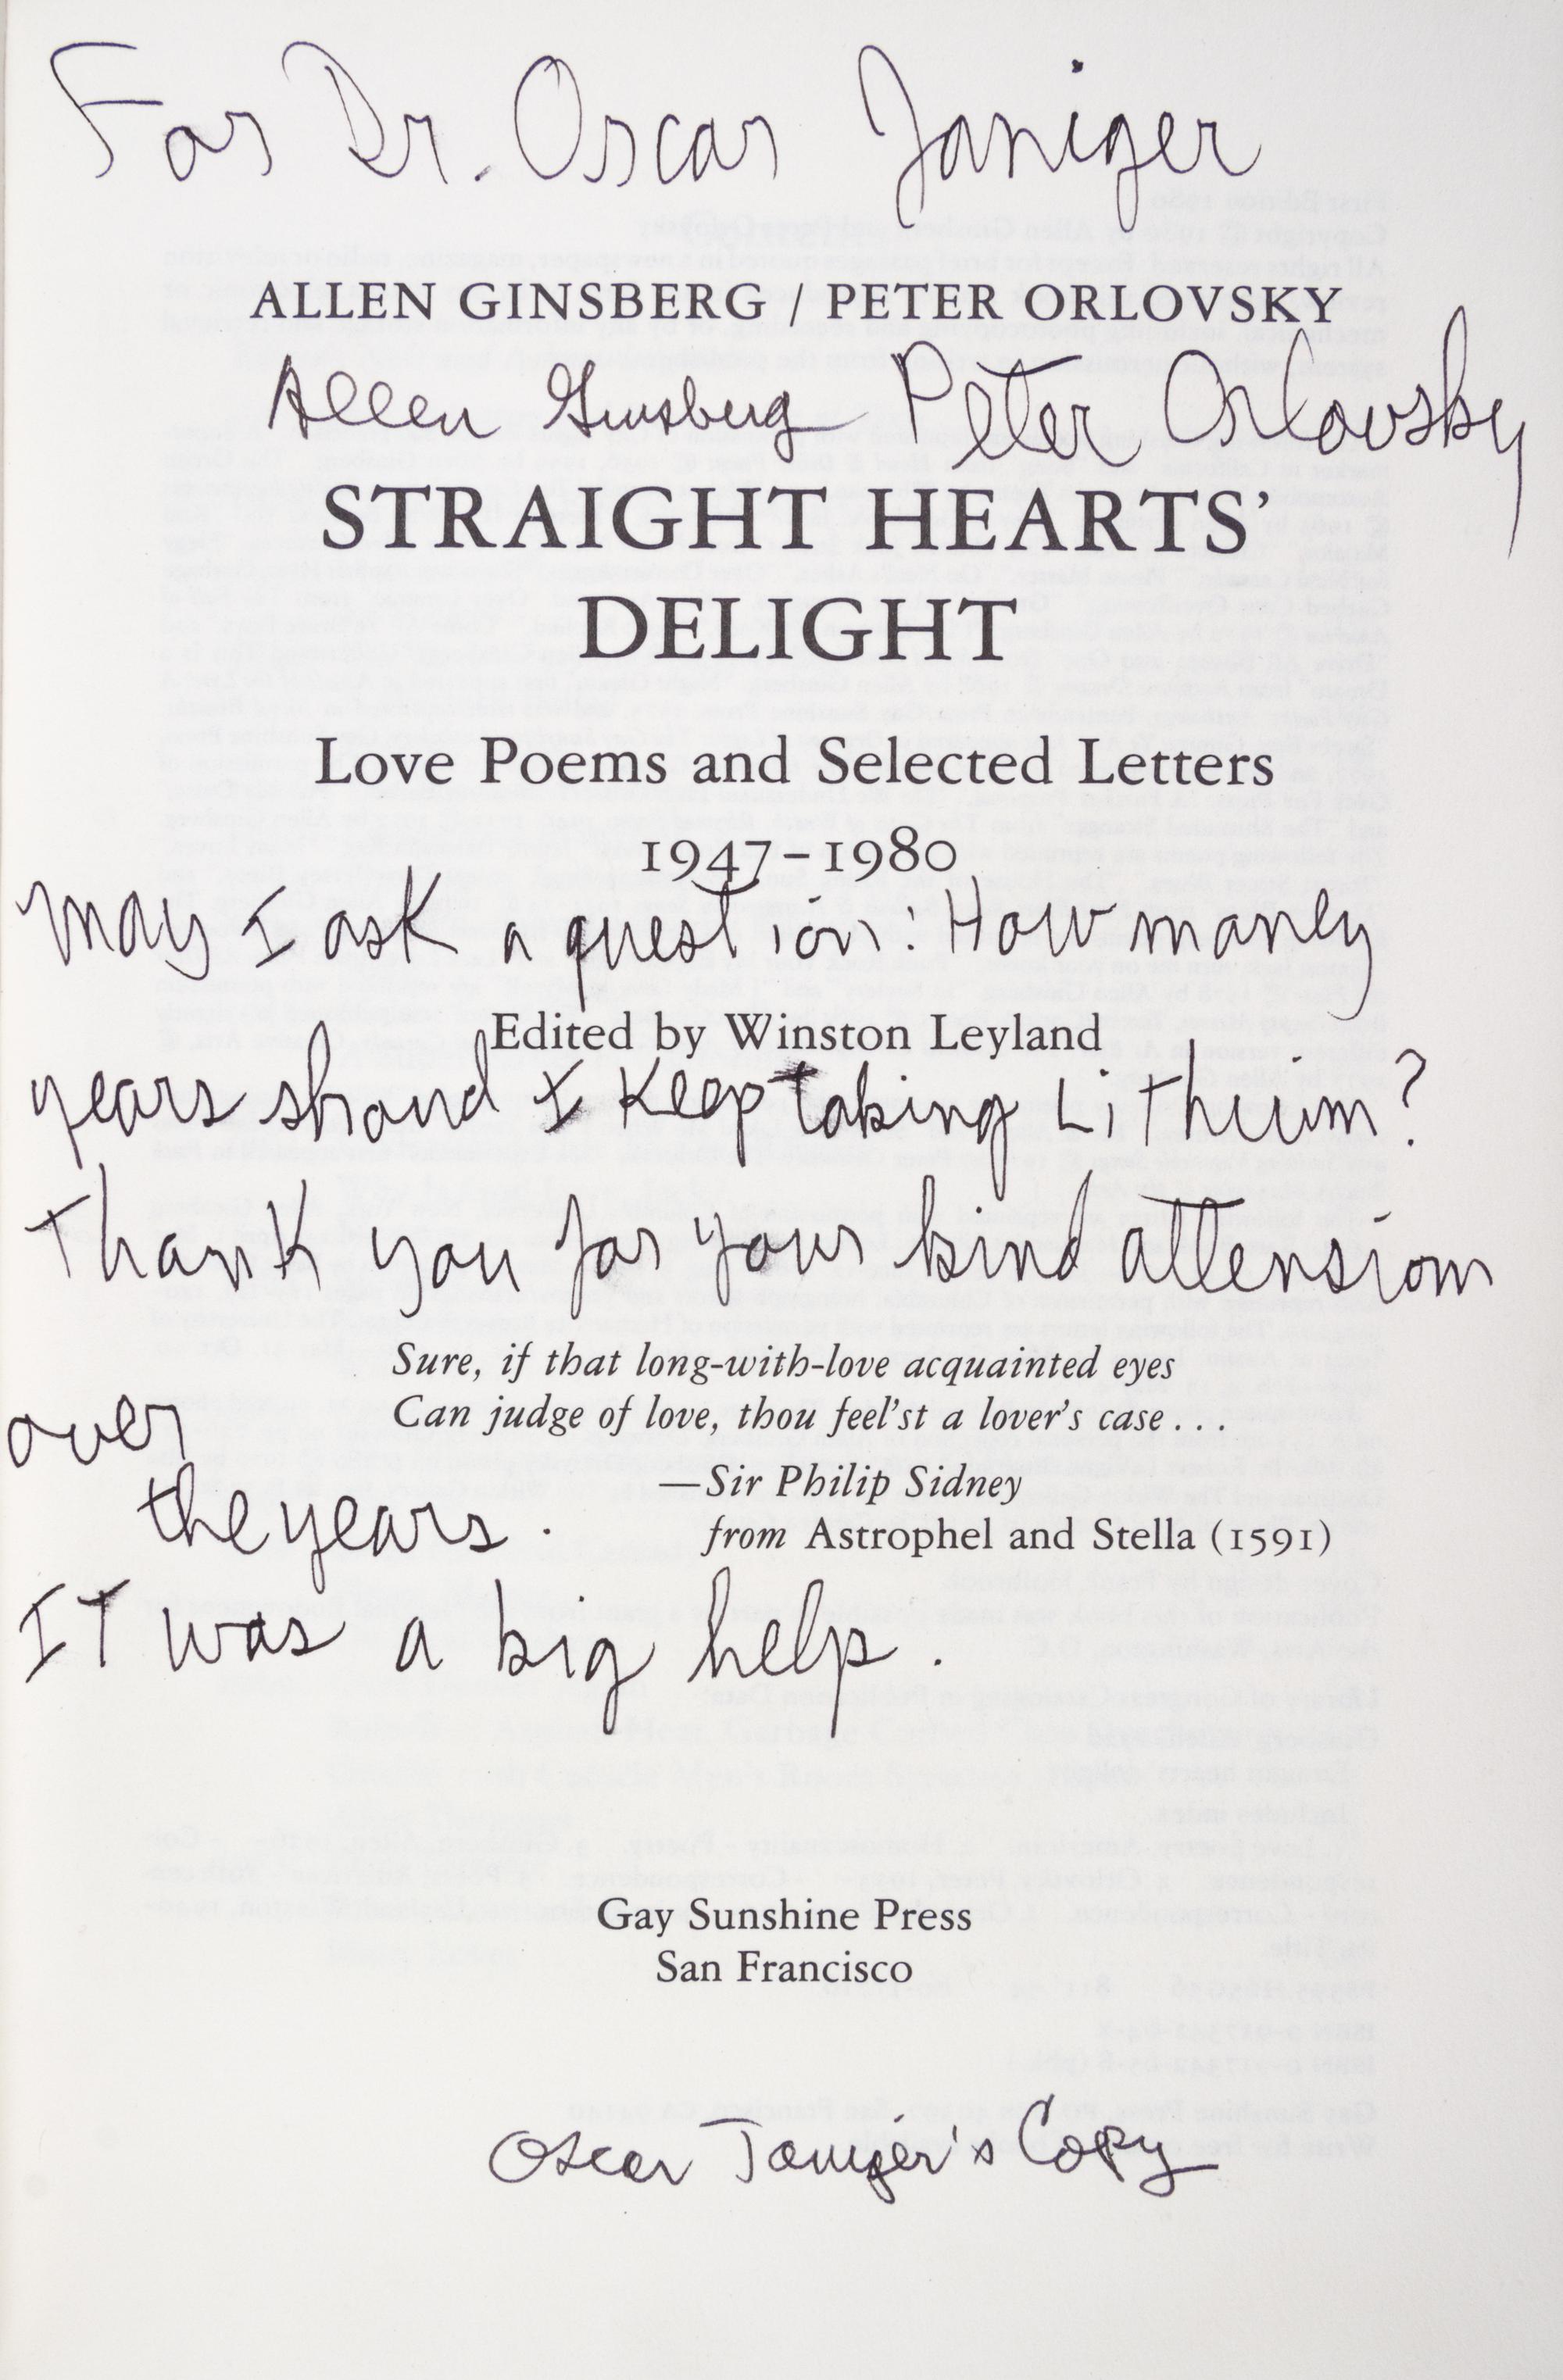 For Dr. Oscar Janiger
ALLEN GINSBERG / PETER ORLOVSKY
Allen Ginsberg Peter Orlovsky
STRAIGHT HEARTS'
DELIGHT
Love Poems and Selected Letters
1947–1980
may I ask a question: How maney
Edited by Winston Leyland
years shoud I Keep taking Lithium?
Thank you for your kind attension
Sure, if that long-with-love acquainted eyes
Can judge of love, thou feel'st a lover's case . . .
over
—Sir Philip Sidney
the years.
from Astrophel and Stella (1591)
IT was a big help.
Gay Sunshine Press
San Francisco
Oscar Janiger's Copy